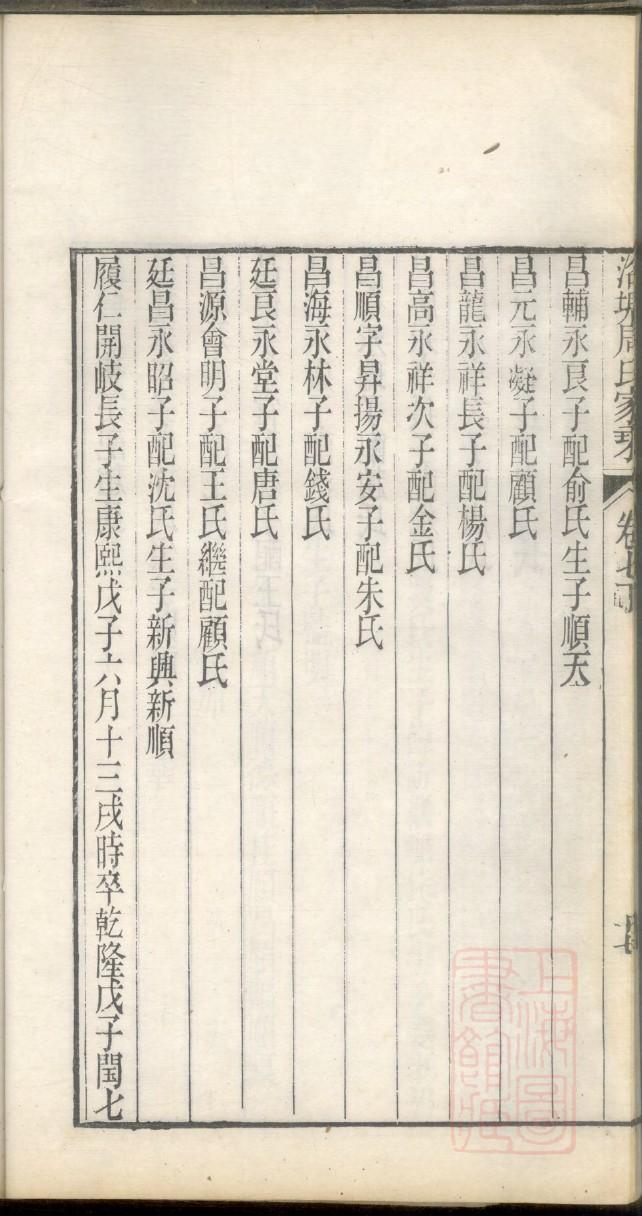 周氏家乘 卷七下
昌輔永良子配俞氏生子順天
昌元永凝子配顧氏
昌龍永祥長子配楊氏
昌高永祥次子配金氏
昌順字昇揚永安子配朱氏
昌海永林子配錢氏
廷良永堂子配唐氏
昌源會明子配王氏繼配顧氏
廷昌永昭子配沈氏生子新興新順
履仁開岐長子生康熙戊子六月十三戌時卒乾隆戊子閏七
上海圖
書館藏